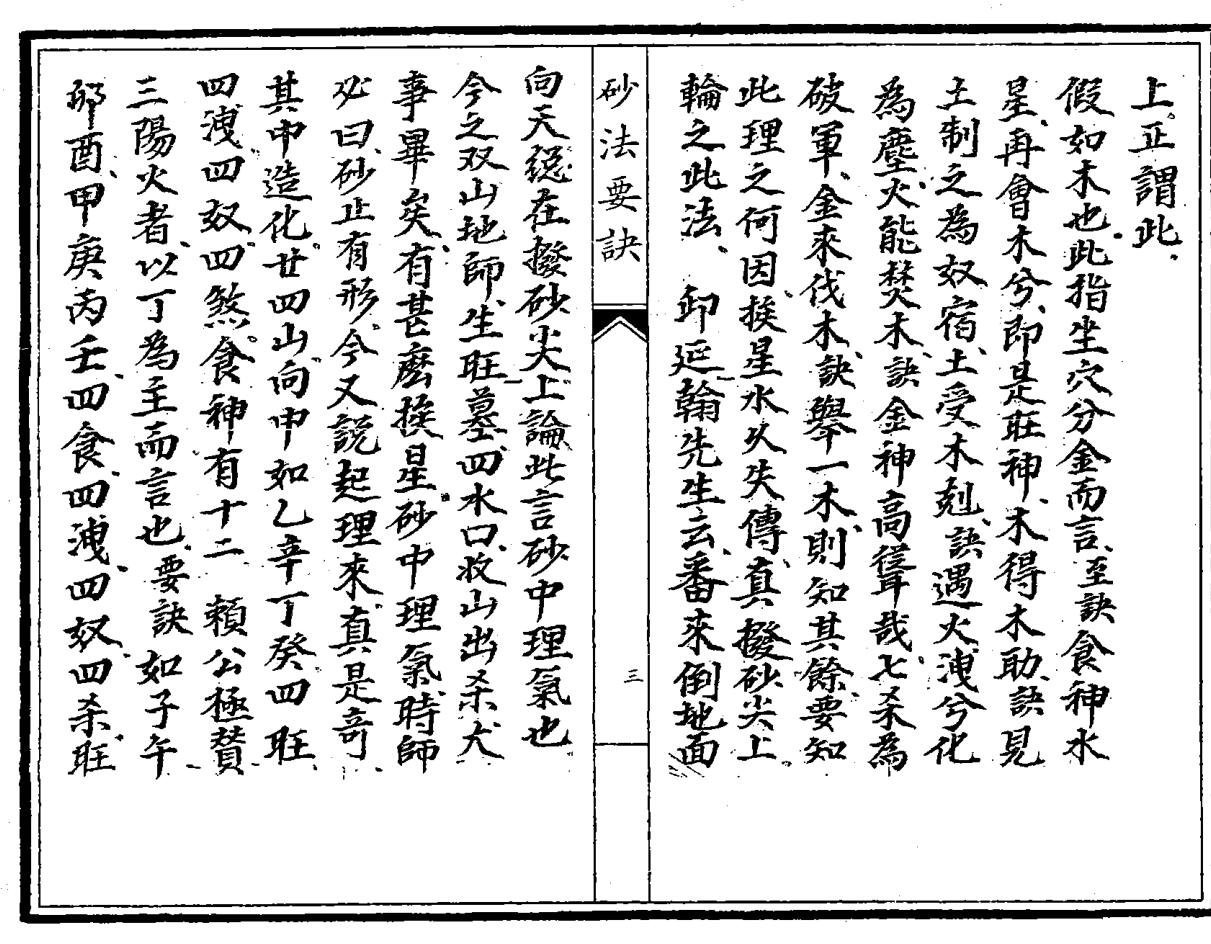 上正謂此、
假如木也此指坐穴分金而言、至訣食神水
星、再會木兮、即是旺神、木得木助、訣見
土制之為奴宿、土受木剋、訣遇火洩兮化
為塵、火能焚木、訣金神高聳哉、七杀為
破軍、金來伐木、訣舉一木、則知其餘、要知
此理之何因、挨星水久失傳、真撥砂尖上
輪之此法、 卸延翰先生云、番來倒地面
砂法要訣
三
向天、總在撥砂尖上論、此言砂中理氣也
今之双山地師、生旺墓四水口、收山出杀大
事畢矣、有甚麽挨星砂中理氣、時師
必曰、砂止有形、今又說起理來、真是奇
其中造化、廿四山向中如乙辛丁癸四旺
四洩四奴四煞、食神有十二 賴公極贊
三陽火者、以丁為主而言也、要訣如子午
卯酉、甲庚丙壬、四食、四洩、四奴四杀旺